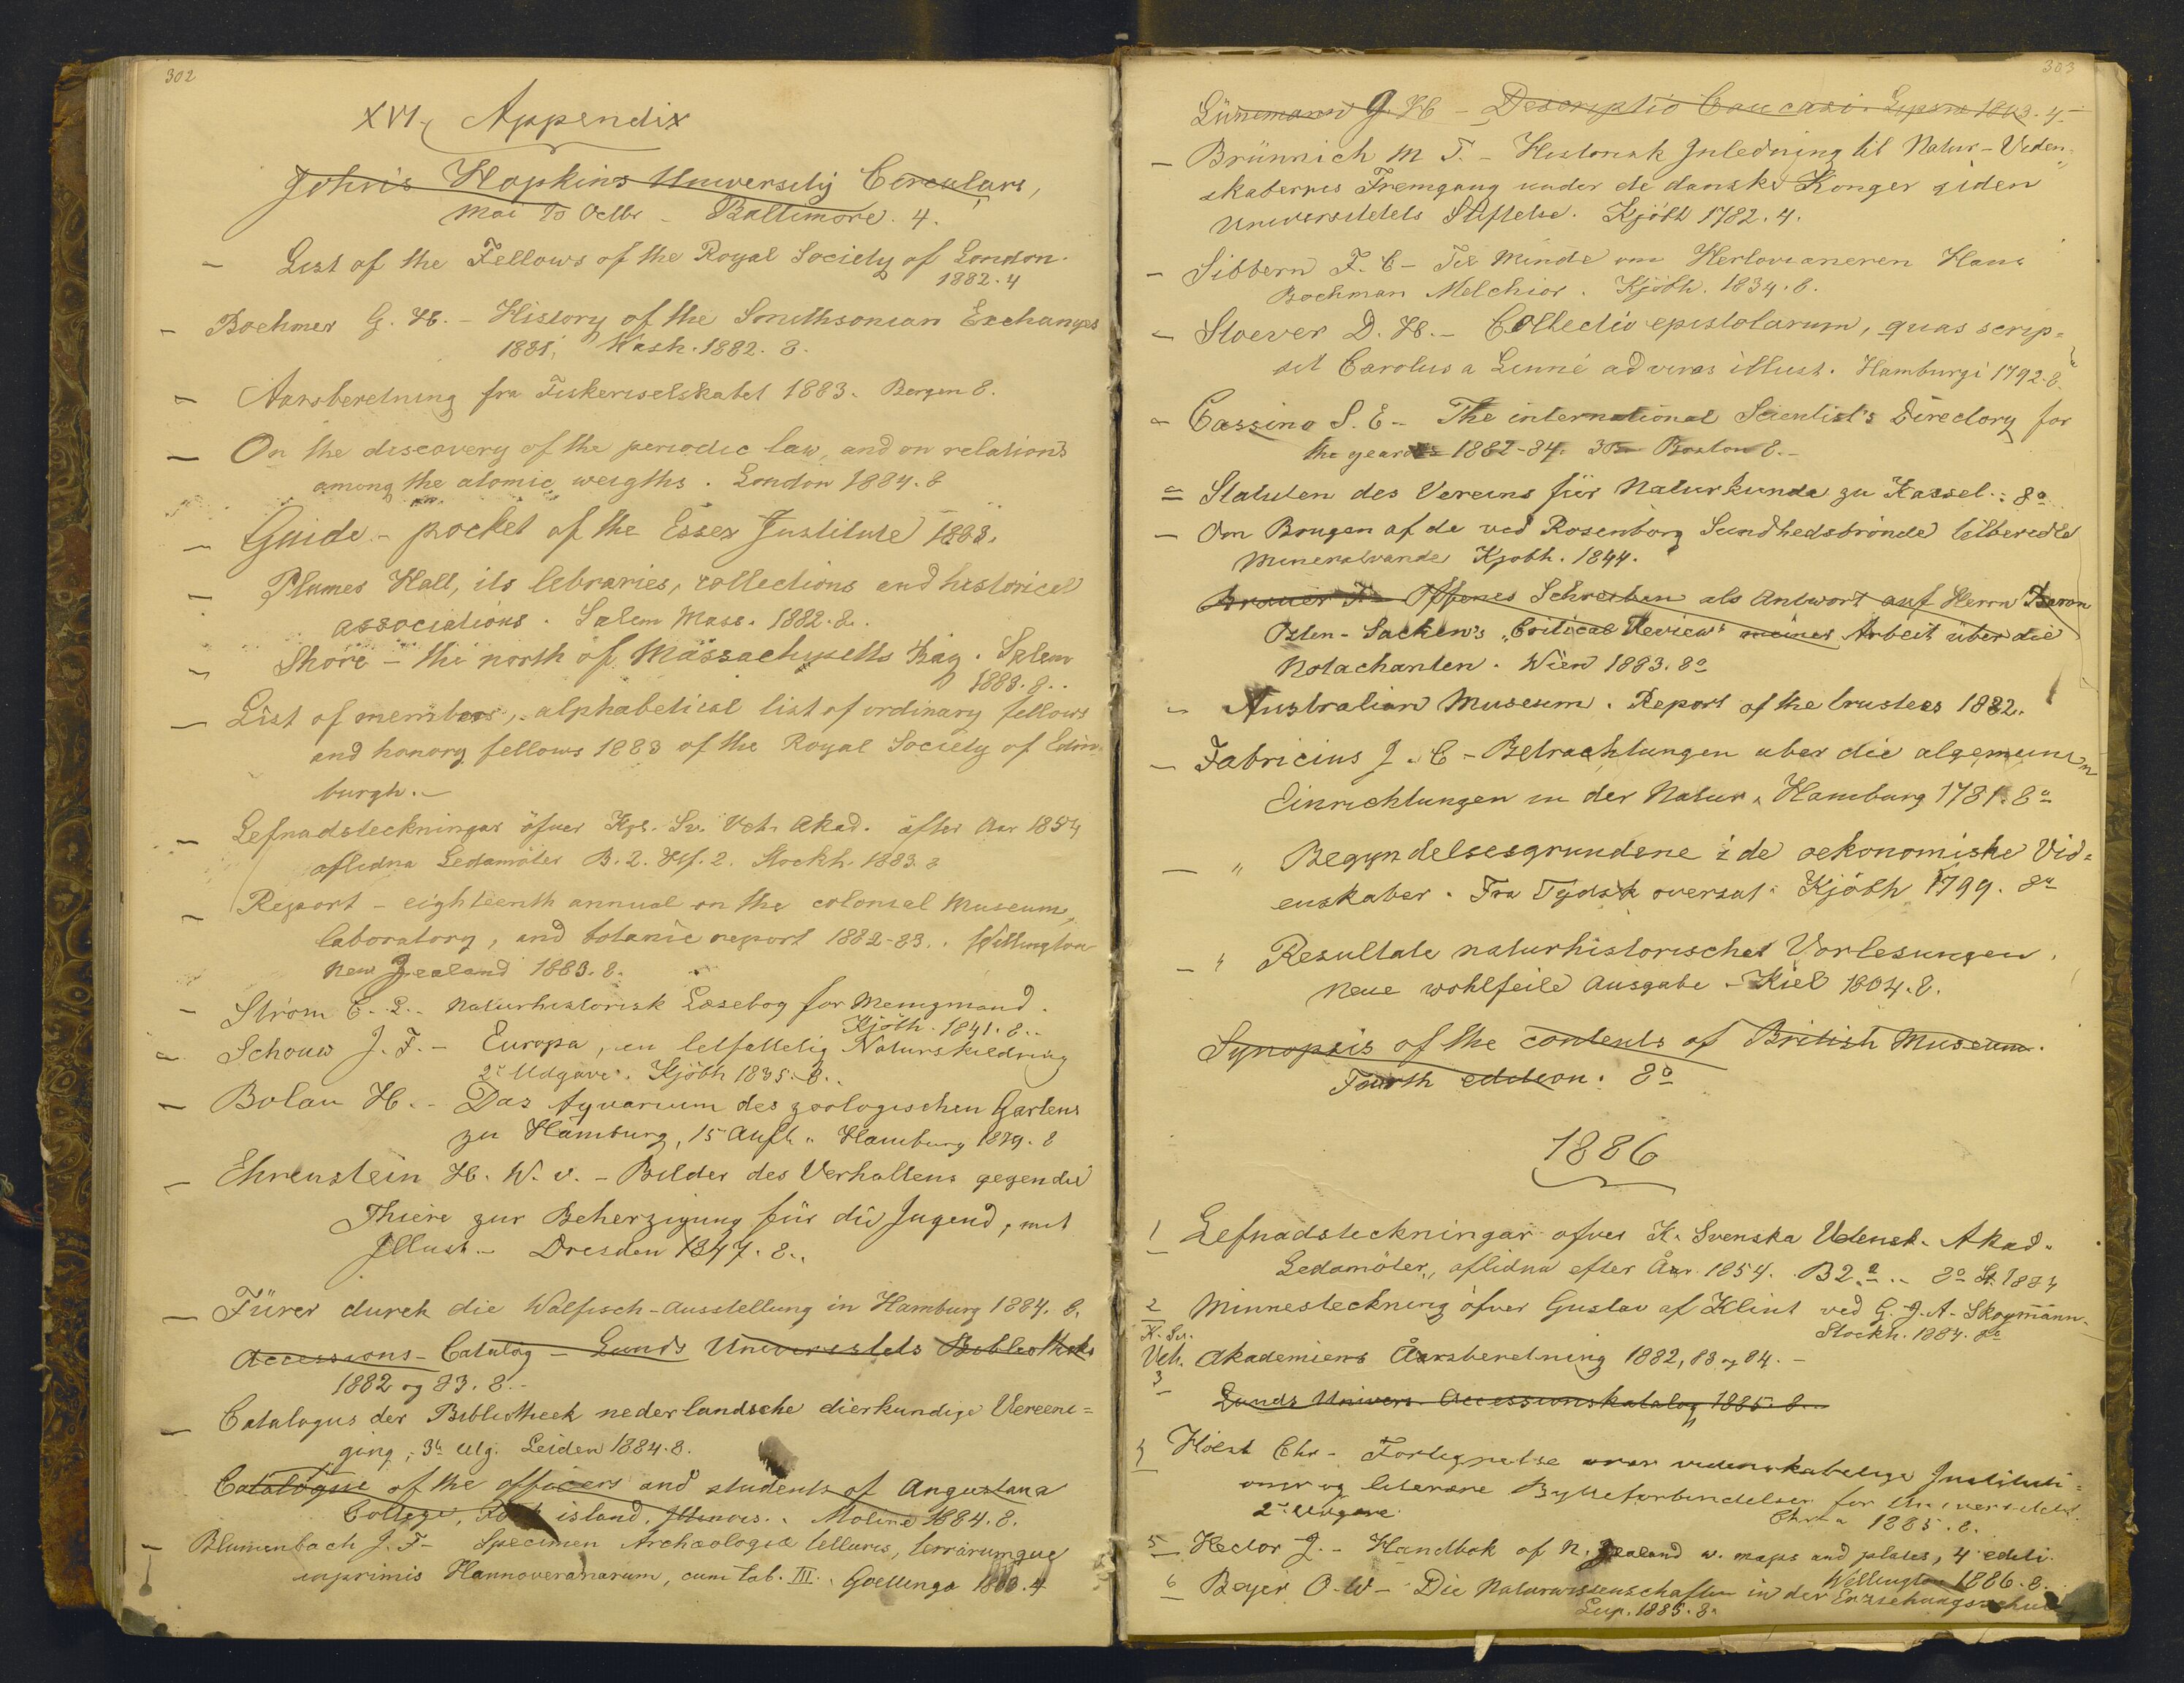 302
XVI. Appendix
John's Hopkins University Circulars,
Mai to Octbr - Baltimore. 4.
- List of the Fellows of the Royal Society of London.
1882. 4
- Boehmer G. H. - History of the Smithsonian Exchanges
1881, Wash. 1882. 8.
- Aarsberetning fra Fiskeriselskabet 1883. Bergen 8.
- On the discovery of the periodic law, and on relations
among the atomic weigths. London 1884. 8
- Guide - pocket of the Essex Institute 1883.
- Plumes Hall, its lebraries, collections and historical
associations. Salem Mass. 1882. 8.
- Shore - the north of Massachusetts Bay. Salem
1883. 8..
- List of members, alphabetical list of ordinary fellows
and honory fellows 1883 of the Royal Society of Edin-
burgh. -
- Lefnadsteckningar öfver Kgl. Sv. Vet. Akad. äfter Aar 1854
aflidna Ledamöter B. 2. Hf. 2. Stockh. 1883. 8
- Report - eighteenth annual on the colonial Museum,
laboratory, and botanic report 1882-83.. Wellington
New Zealand 1883. 8.
- Strom C. L. - Naturhistorisk Læsebog for Menigmand.
Kjöbh. 1841. 8..
- Schouw J. F. - Europa, en letfattelig Naturskildring
2e Udgave. Kjöbh 1835. 8..
- Bolau H. - Das Aquarium des zoologischen Gartens
zu Hamburg, 15 Aufl. Hamburg 1879. 8
- Ehrenstein H. W. v. - Bilder des Verhaltens gegen die
Thiere zur Beherzigung für die Jugend, mit
Illust. - Dresden 1847. 8..
- Fürer durch die Walfisch-Ausstellung in Hamburg 1884. 8.
Accessions-Catalog - Lunds Universitets Bibliotheks
1882 og 83. 8. -
- Catalogus der Bibliotheek nederlandsche dierkundige Vereeni=
ging, 3e Uig. Leiden 1884. 8.
Catalogue of the officers and students of Augustana
College, Rock island, Illinois.. Moline 1884. 8.
- Blumenbach J. F - Specimen Archæologiæ telluris, terrarumque
inprimis Hannoveranarum, cum tab. III.. Goettinga 1803. 4
303
Lünemann G H - Descriptio Caucasi. Lipsiæ 1803. 4. -
- Brünnich M T. - Historisk Inledning til Natur-Viden=
skabernes Fremgang under de danske Konger siden
Universitetets Stiftelse. Kjöbh 1782. 4.
- Sibbern F. C - Til Minde om Herlovianeren Hans
Bochman Melchior. Kjöbh. 1834. 8.
- Stoever D. H. - Collectio epistolarum, quas scrip=
sit Carolus a Linné ad viros illust. Hamburgi 1792. 8.
- Cassino S. E - The international Scientist's Directory for
the year 1882-84. Boston 8. -
= Statuten des Vereins für Naturkunde zu Kassel.: 8o
- Om Brugen af de ved Rosenborg Sundhedsbrönde tilberedte
Mineralvande Kjobh. 1844.
Brauer F - Offenes Schreiben als Antwort auf Herrn Baron
Osten-Sacken's "Critical Review" meines Arbeit über die
Notachanten. Wien 1883. 8o
- Australian Museum. Report of the trustees 1882.
- Fabricius J. C - Betrachtungen uber die algemeinen
Einrichtungen in der Natur. Hamburg 1781. 8o
- " Begyndelsesgrundene i de oekonomiske Vid=
enskaber. Fra Tydsk oversat. Kjöbh 1799. 8o
- " Resultate naturhistorischer Vorlesungen.
Neue wohlfeile Ausgabe - Kiel 1804. 8.
Synopsis of the contents of British Museum.
Fourth edition. 8o
1886
1 Lefnadsteckningar ofver K. Svenska Vetensk. Akad.
Ledamöter, aflidna efter Åar 1854. B 2.. 8o St. 1884
2 Minnesteckning öfver Gustav af Klint ved G. J. A. Skogmann.
Stockh. 1884. 8o
K. Sv.
Vet. Akademiens Åarsberetning 1882, 83 og 84. -
3
Lunds Univers. Accessionskatalog 1885. 8..
4 Hölst Chr - Fortegnelse over videnskabelige Instituti=
oner og literære Bytteforbindelser for Universitetet.
2e Udgave. Chra 1885. 8.
5 Hector J. - Handbok of N. Zealand w. maps and plates, 4 editi.
Wellington 1886. 8.
6 Beyer O. W - Die Naturwissenschaften in der Erziehungsschule
Leip. 1885. 8.